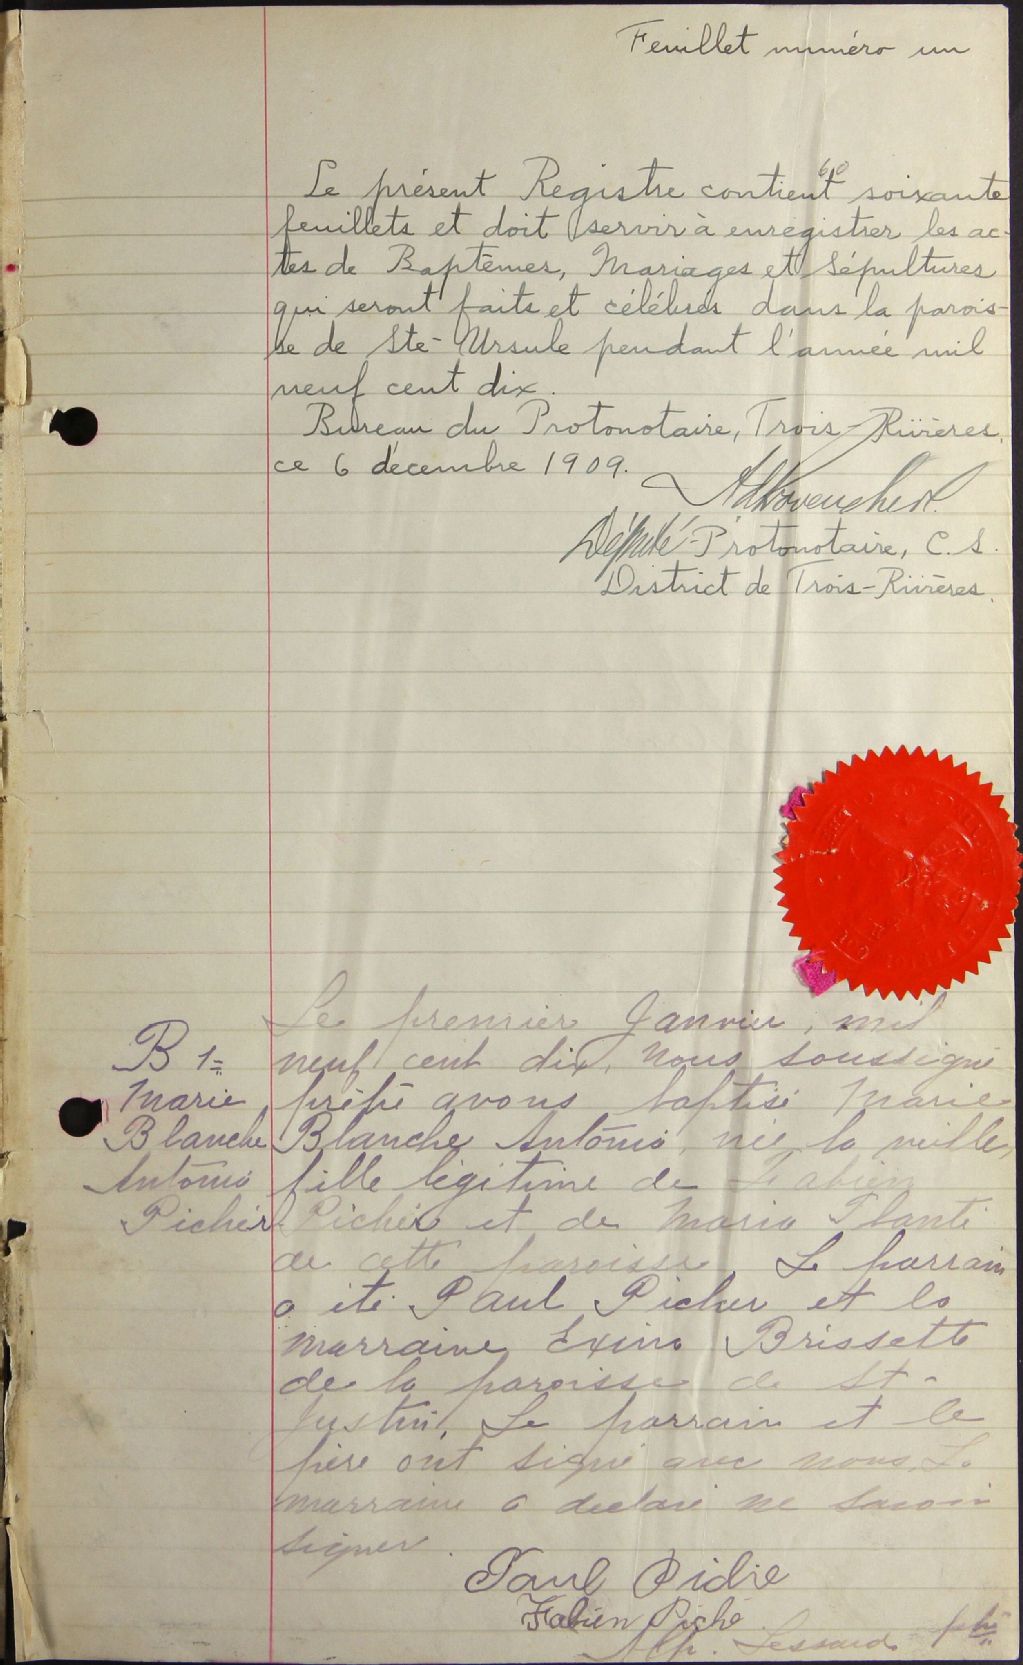 Feuillet numéro un
60
Le présent Registre contient soixante
feuillets et doit servir à enregistrer les ac-
tes de Baptêmes, Mariages et Sépultures
qui seront faits et célébrés dans la parois-
se de Ste-Ursule pendant l'année mil
neuf cent dix.
Bureau du Protonotaire, Trois-Rivières,
ce 6 décembre 1909.
Député-Protonotaire, C. S.
District de Trois-Rivières.
Le premier Janvier, mil
B 1= neuf cent dix, nous soussigné
Marie prêtre avons baptisé Marie
Blanche Blanche Antonia, née la veille,
Antonia fille légitime de Fabien
Picher Picher et de Maria Planti
de cette paroisse. Le parrain
a été Paul Picher et la
marraine Exina Brissette
de la paroisse de St-
Justin. Le parrain et le
père ont signé avec nous. La
marraine a déclaré ne savoir
signer.
Paul Piché
Fabien Piché
Alp. Lessard ptre